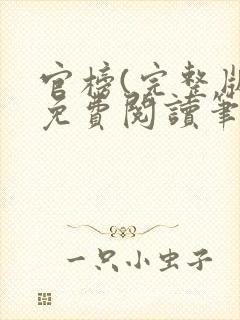 官榜(完整版
免費閱讀筆
一只小虫子